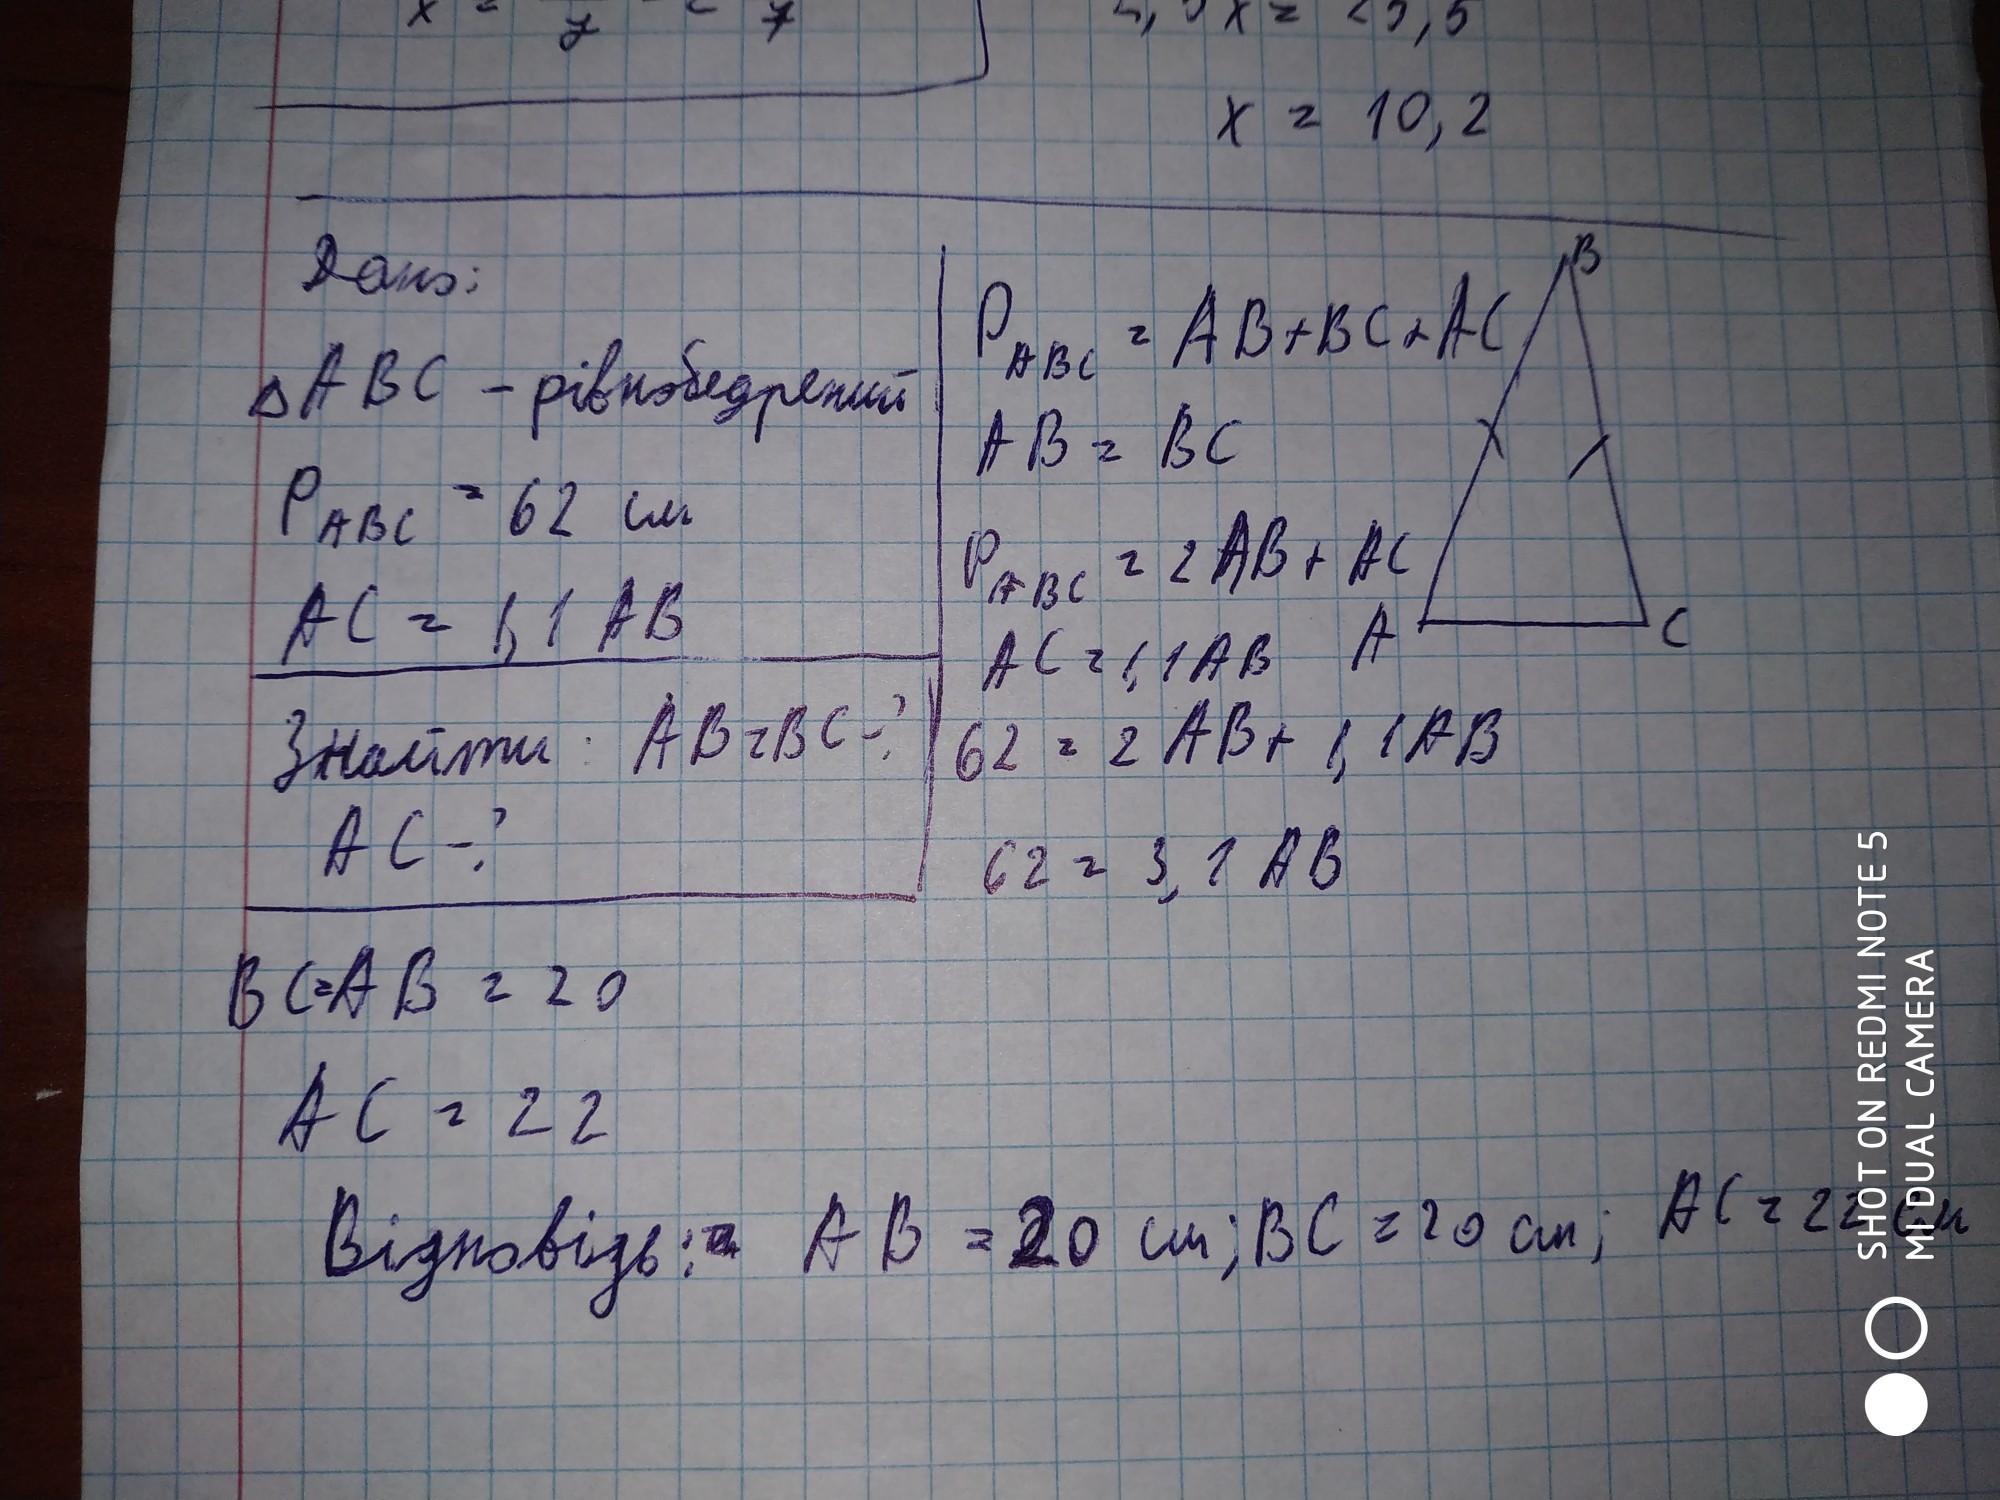 x = 10,2
Дано:
△ABC – рівнобедрений
P_ABC = 62 см
AC = 1,1 AB
Знайти: AB=BC-?
AC-?
P_ABC = AB+BC+AC
AB = BC
P_ABC = 2AB + AC
AC = 1,1AB
62 = 2AB+ 1,1AB
62 = 3,1 AB
B
A
C
BC=AB = 20
AC = 22
Відповідь: AB = 20 см; BC = 20 см; AC = 22 см
SHOT ON REDMI NOTE 5
MI DUAL CAMERA